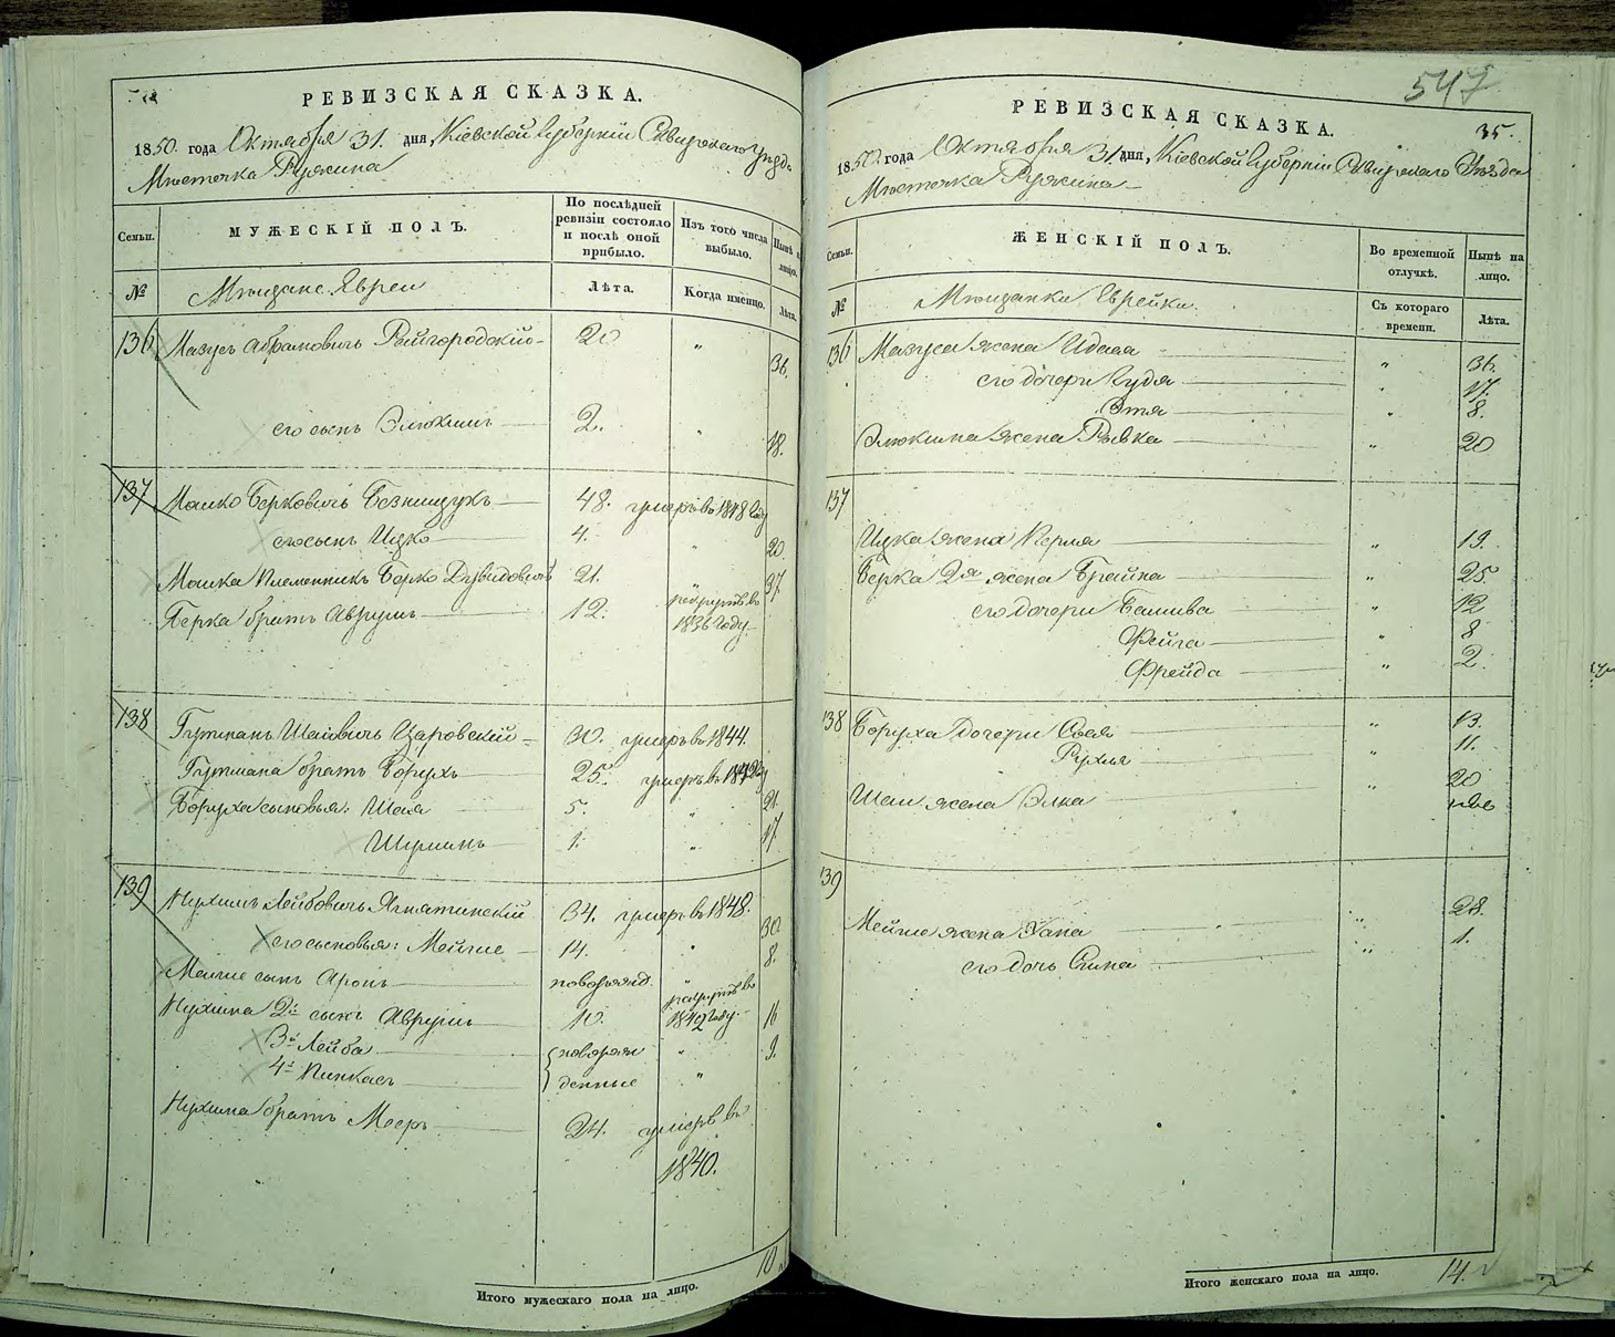 РЕВИЗСКАЯ СКАЗКА.
1850. года Октября 31. дня, Кіевской Губерніи Сквирскаго Уѣзда
Мѣстечка Ружина
Семьи.
МУЖЕСКІЙ ПОЛЪ.
По послѣдней ревизіи состояло и послѣ оной прибыло.
Изъ того числа выбыло.
Нынѣ на лицо.
№
Мѣщане Евреи
Лѣта.
Когда именно.
Лѣта.
136 Мазусъ Абрамовичъ Райгородскій 20 „ 36.
его сынъ Элюкимъ 2. „ 18.
137 Мошко Берковичъ Безпищукъ 48. умеръ въ 1848 году
его сынъ Ицко 4. „ 20.
Мошка племенникъ Берко Дувидовичъ 21. „ 37.
Берка братъ Аврумъ 12. рекрутъ въ
1836 году
138 Гутманъ Шаіовичъ Царовскій 30. умеръ въ 1844.
Гутмана братъ Борухъ 25. умеръ въ 1842 году
Боруха сыновья: Шаія 5. „ 21.
Шулимъ 1. „ 17
139 Нухимъ Лейбовичъ Ягнятинскій 34. умеръ въ 1848.
его сыновья: Мейше 14. „ 30.
Мейше сынъ Аронъ новорожд. „ 8.
Нухима 2й сынъ Аврумъ 10. рекрутъ въ
1849 году
3й Лейба новорож „ 16
4й Пинкасъ денные „ 9.
Нухима братъ Мееръ 24. умеръ въ
1840.
Итого мужескаго пола на лицо. 10
547
РЕВИЗСКАЯ СКАЗКА. 35.
1850. года Октября 31 дня, Кіевской Губерніи Сквирскаго Уѣзда
Мѣстечка Ружина
Семьи.
ЖЕНСКІЙ ПОЛЪ.
Во временной отлучкѣ.
Нынѣ на лицо.
№
Мѣщанки Еврейки.
Съ котораго времени.
Лѣта.
136 Мазуса жена Идася „ 36.
его дочери Гудя „ 17.
Этя „ 8.
Элюкима жена Рывка „ 20
137
Ицка жена Перля „ 19.
Берка 2я жена Брайна „ 25.
его дочери Башива „ 12
Фейга „ 8
Фрейда „ 2.
138 Боруха дочери Сося „ 13.
Рухля „ 11.
Шаи жена Элка „ 20
139
Мейше жена Хана „ 28.
его дочь Сима „ 1.
Итого женскаго пола на лицо. 14.